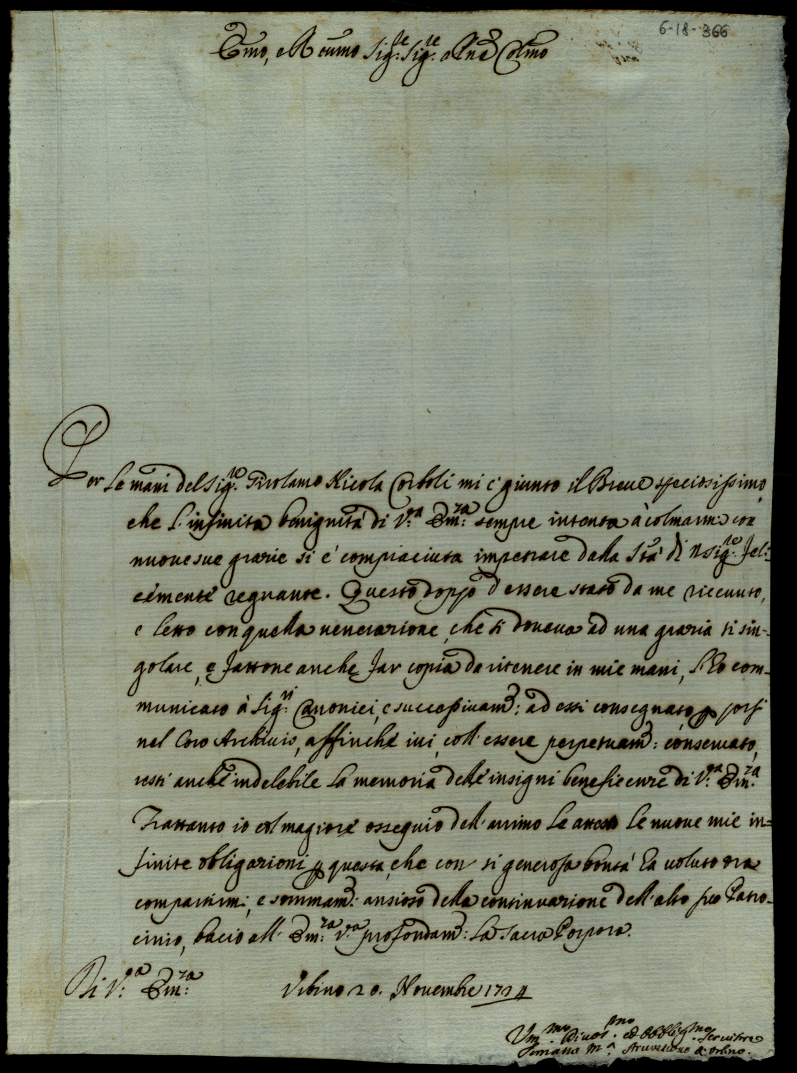 6-18-366
Emo, e R̃cumo Sig:re Sig:re e Pne Colmo
Per le mani del Sig:re Girolamo Nicola Corboli mi è giunto il Breve speciosissimo,
che l'infinita benignità di V:ra Em:za sempre intenta à colmarmi con
nuove sue grazie si è compiaciuta impetrare dalla Stà di N Sig:re Feli=
cemente regnante. Questo doppo d'essere stato da me riceuuto,
e letto con quella venerazione, che si doueua ad una grazia sì sin=
golare, e fattone anche far copia da ritenere in mie mani, l'ho com=
municato à Sig:ri Canonici, e successivam:e ad essi consegnato p porsi
nel loro Archivio, affinche ivi, coll'essere perpetuam:e conservato,
resti anche indelebile la memoria delle insigni beneficenze di V:ra Em:za
Trattanto io col magiore ossequio dell'animo le attesto le nuove mie in=
finite obligazioni p questa, che con sì generosa bontà ha voluto ora
compartirmi, e sommam:e ansioso della continuazione dell'alto suo Patro=
cinio, bacio all' Em:za V:ra profondam:e la Sacra Porpora.
Di V:ra Em:za Urbino 20. Novembre 1724
Um:mo Divot:mo ed Obblig:mo Servitore
Tomasso M:a Arcivescovo d'Urbino.